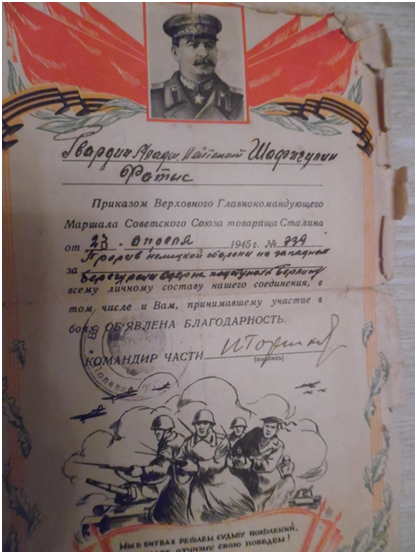 Гвардии младш. Лейтенант Шафигулин
Фатыс
Приказом Верховного Главнокомандующего
Маршала Советского Союза товарища Сталина
от 23 апреля 1945 г. № 339
за Прорыв немецкой обороны на западном
берегу реки Одер на подступах Берлину
всему личному составу нашего соединения, в
том числе и Вам, принимавшему участие в
боях, ОБ'ЯВЛЕНА БЛАГОДАРНОСТЬ.
КОМАНДИР ЧАСТИ
(подпись)
МЫ В БИТВАХ РЕШАЕМ СУДЬБУ ПОКОЛЕНИЙ,
ОТЧИЗНУ СВОЮ ПОВЕДЕМ!